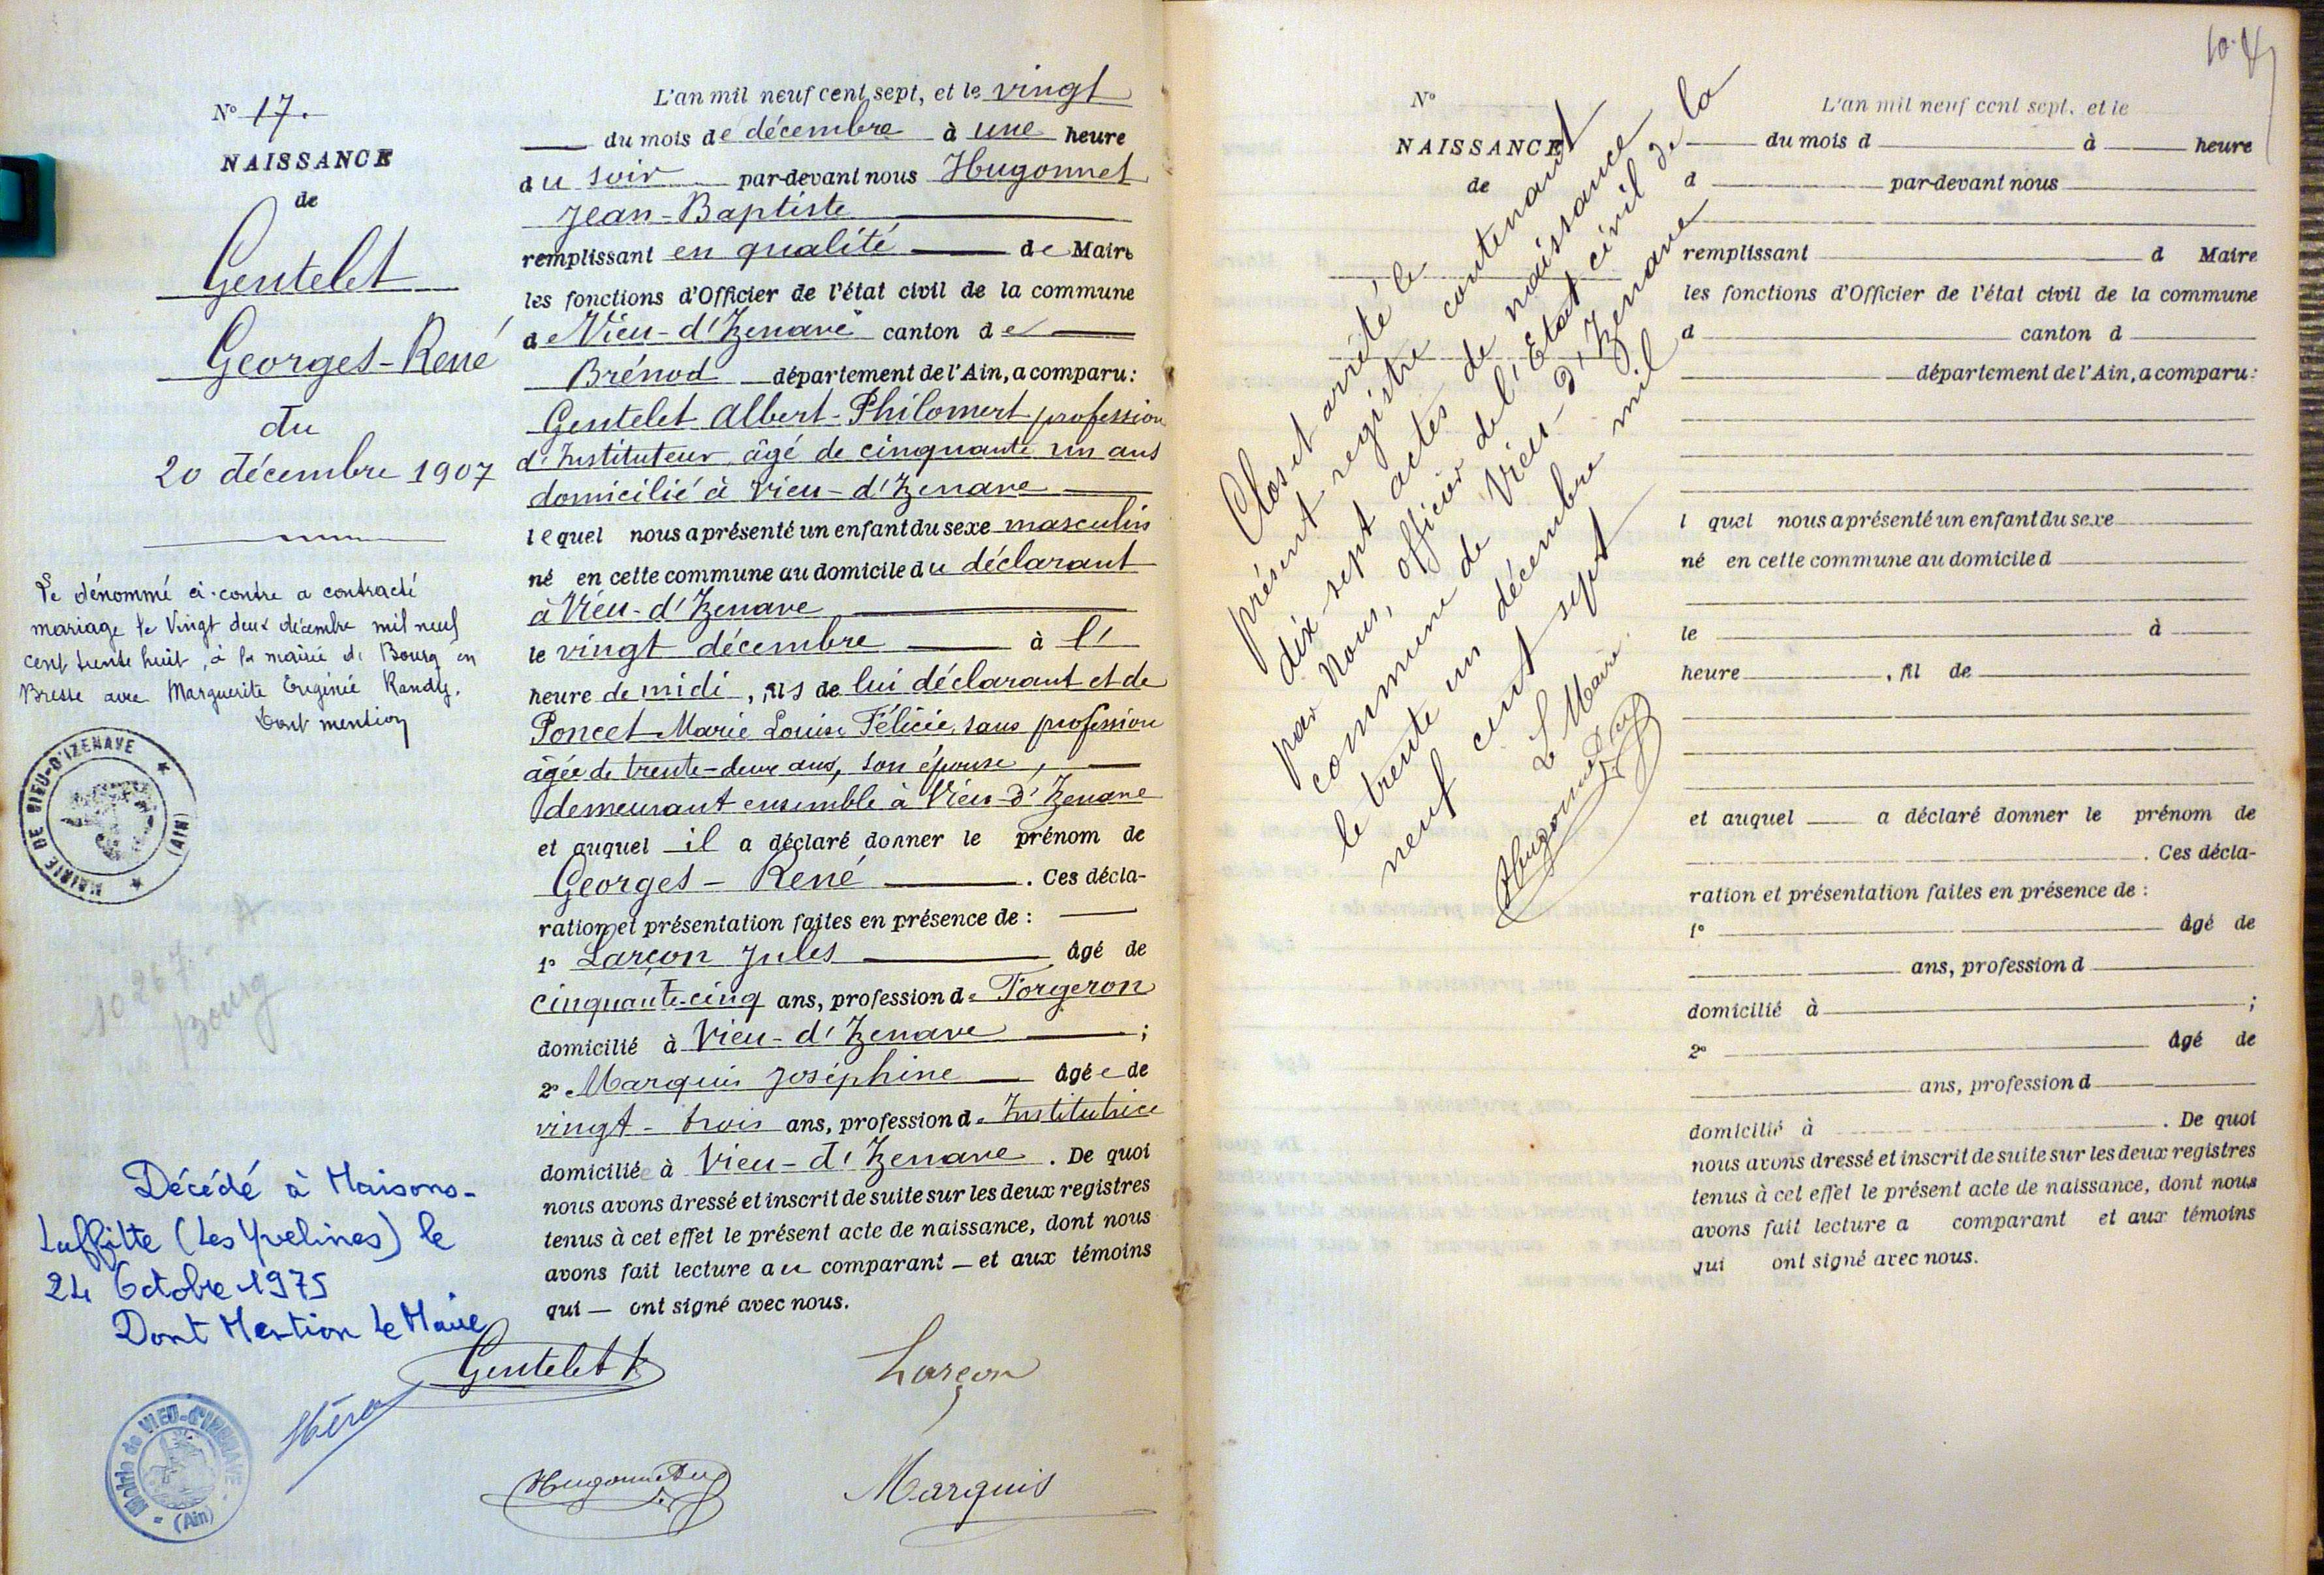 N° 17.
NAISSANCE
de
Gentelet
Georges-René
du
20 décembre 1907
Le dénommé ci-contre a contracté
mariage le Vingt deux décembre mil neuf
cent trente huit, à la mairie de Bourg en
Bresse avec Marguerite Eugénie Randy.
Dont mention
MAIRIE DE VIEU-D'IZENAVE (AIN)
10267
Bourg
Décédé à Maisons-
Laffitte (Les Yvelines) le
24 Octobre 1975
Dont Mention Le Maire
Mairie de VIEU-d'IZENAVE (Ain)
L'an mil neuf cent sept, et le vingt
du mois de décembre à une heure
du soir par-devant nous Hugonnet
Jean-Baptiste
remplissant en qualité de Maire
les fonctions d'Officier de l'état civil de la commune
de Vieu-d'Izenave canton de
Brénod département de l'Ain, a comparu :
Gentelet Albert-Philomert profession
d'Instituteur, âgé de cinquante un ans
domicilié à Vieu-d'Izenave
lequel nous a présenté un enfant du sexe masculin
né en cette commune au domicile du déclarant
à Vieu-d'Izenave
le vingt décembre à l'
heure de midi, fils de lui déclarant et de
Poncet Marie Louise Félicie, sans profession
âgée de trente-deux ans, son épouse,
demeurant ensemble à Vieu-d'Izenave
et auquel il a déclaré donner le prénom de
Georges-René. Ces décla-
ration et présentation faites en présence de :
1° Larçon Jules âgé de
cinquante-cinq ans, profession de Forgeron
domicilié à Vieu-d'Izenave ;
2° Marquis Joséphine âgée de
vingt-trois ans, profession d'Institutrice
domiciliée à Vieu-d'Izenave. De quoi
nous avons dressé et inscrit de suite sur les deux registres
tenus à cet effet le présent acte de naissance, dont nous
avons fait lecture au comparant et aux témoins
qui ont signé avec nous.
Gentelet
Larçon
Hugonnet
Marquis
N°
NAISSANCE
de
Clos et arrêté le
présent registre contenant
dix-sept actes de naissance
par nous, officier de l'Etat civil de la
commune de Vieu-d'Izenave
le trente un décembre mil
neuf cent sept
Le Maire.
Hugonnet
L'an mil neuf cent sept, et le
du mois d à heure
d par-devant nous
remplissant d Maire
les fonctions d'Officier de l'état civil de la commune
d canton d
département de l'Ain, a comparu :
l quel nous a présenté un enfant du sexe
né en cette commune au domicile d
le à
heure , fil de
et auquel a déclaré donner le prénom de
. Ces décla-
ration et présentation faites en présence de :
1° âgé de
ans, profession d
domicilié à ;
2° âgé de
ans, profession d
domicilié à . De quoi
nous avons dressé et inscrit de suite sur les deux registres
tenus à cet effet le présent acte de naissance, dont nous
avons fait lecture a comparant et aux témoins
qui ont signé avec nous.